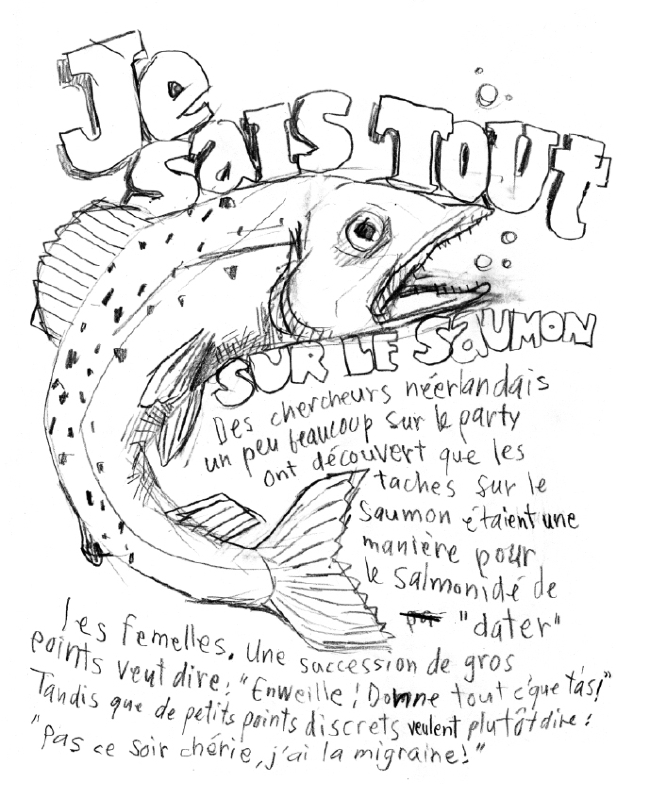 Je
sais TOUT
SUR LE SAUMON
Des chercheurs néerlandais
un peu beaucoup sur le party
ont découvert que les
taches sur le
saumon étaient une
manière pour
le salmonidé de
"dater"
les femelles. Une succession de gros
points veut dire: "Enweille! Donne tout c'que t'as!"
Tandis que de petits points discrets veulent plutôt dire:
"Pas ce soir chérie, j'ai la migraine!"